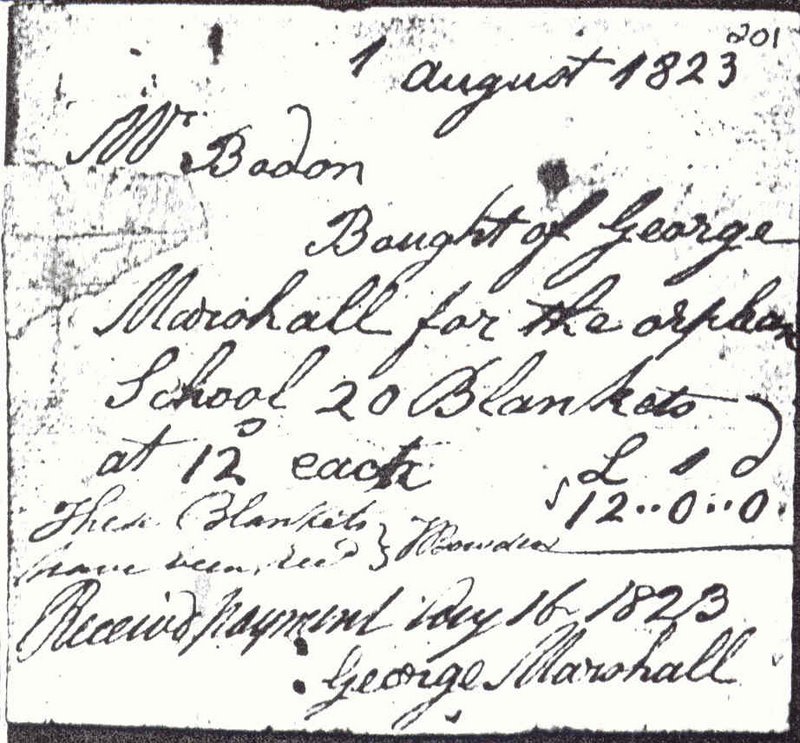 201
1 august 1823
Mr. Badon
Bought of George
Marshall for the orphan
School 20 Blankets
at 12s each £ s d
12..0..0
These Blankets
have been rec'd
Received payment 16 1823
George Marshall